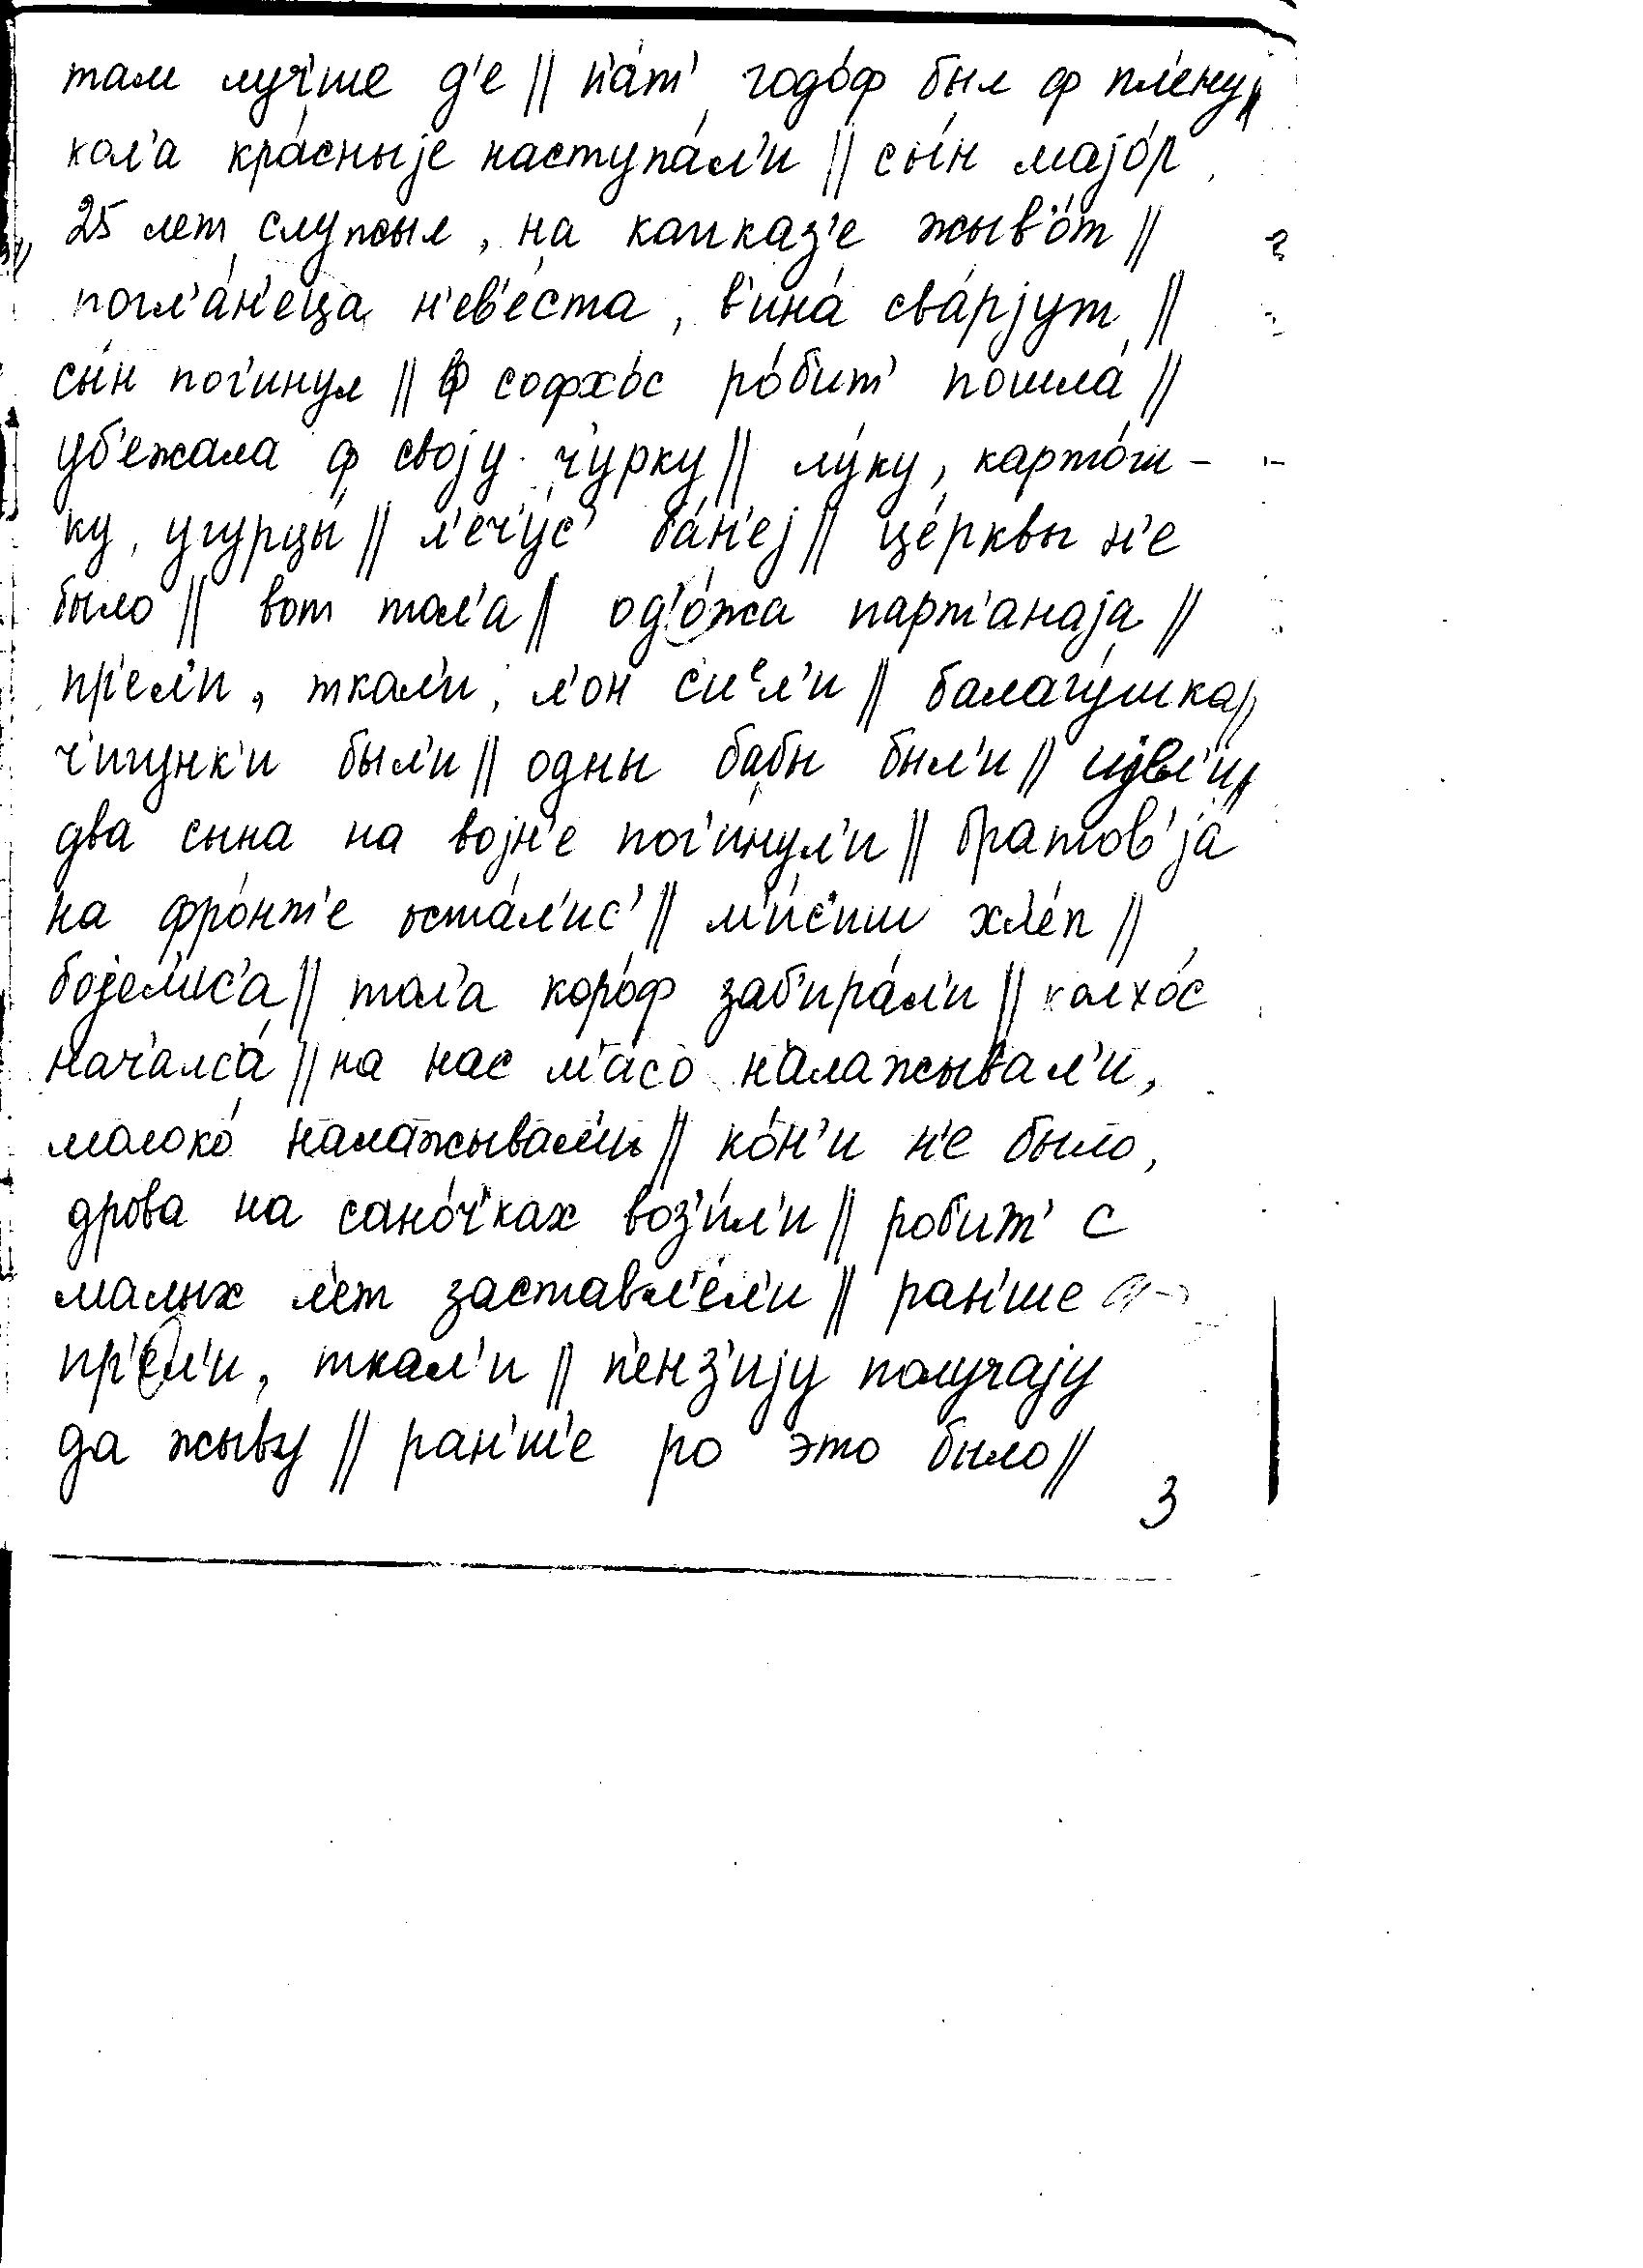 там луч'ше д'е || п'а́т' годо́ф был ф пл'ену́ ||
кол'а кра́сныjе наступа́л'и || сы́н маjо́р,
25 лет служыл, на капказ'е жыв'о́т ||
погл'а́н'еца н'ев'е́ста, в'ина́ сва́рjут ||
сы́н пог'инул || ф софхо́с ро́бит' пошла́ ||
уб'ежала ф своjу ч'урку || лу́ку, карто́ш-
ку, угурцы́ || л'еч'у́с' ба́н'еj || це́рквы н'е
было || вот тол'а || од'о́жа парт'анаjа ||
пр'ел'и, ткал'и, л'он с'иᵉл'и || балагу́шка ||
ч'игунк'и был'и || одны бабы был'и ||
два сына на воjн'е пог'и́нул'и || братов'jа́
на фро́нт'е оста́л'ис' || м'и́с'иш хл'е́п ||
боjем'ис'а || тол'а коро́ф заб'ира́л'и || колхо́с
нач'алса́ || на нас м'а́со налажывал'и,
молоко́ нала́жывал'и || ко́н'и н'е было,
дрова на сано́ч'ках воз'и́л'и || робит' с
малых л'ет заставл'е́л'и || ран'ше
пр'ел'и, ткал'и || п'енз'иjу получаjу
да жыву || ран'ш'е ро это было ||
3